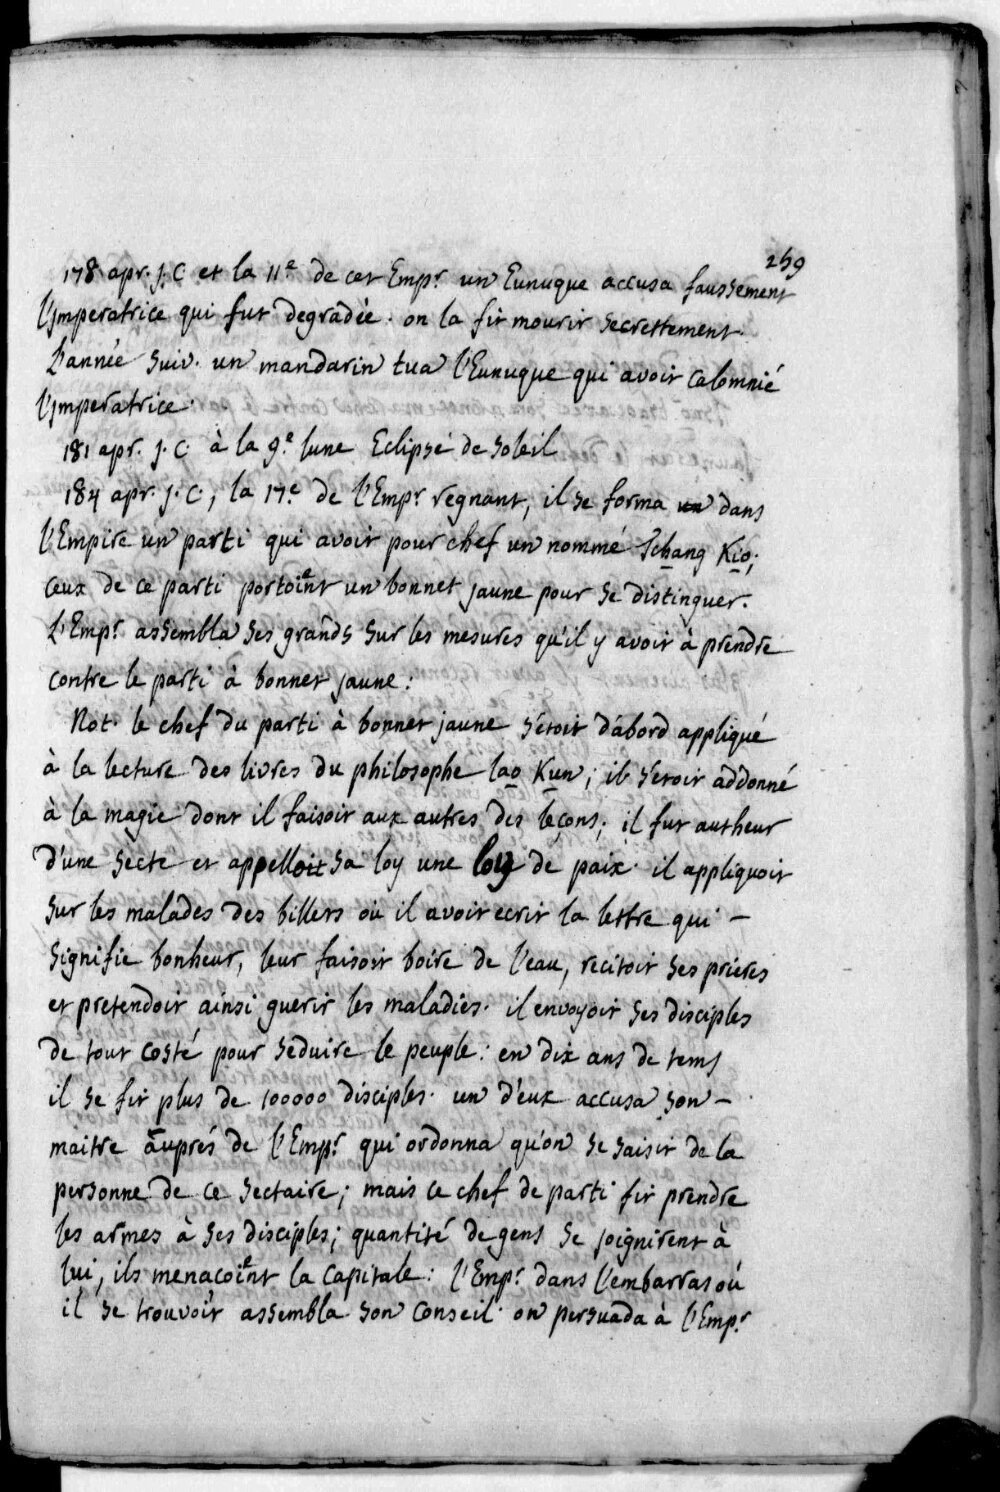 259
178 apr. J. C. et la 11.e de cet Emp.r un Eunuque accusa faussement
l'Imperatrice qui fut degradée. on la fit mourir secrettement.
L'année suiv. un mandarin tua l'Eunuque qui avoit calomnié
l'Imperatrice.
181 apr. J. C. à la 9.e lune Eclipsé de Soleil
184 apr. J. C., la 17.e de l'Emp.r regnant, il se forma un dans
l'Empire un parti qui avoit pour chef un nommé Tchang Kio;
ceux de ce parti portoient un bonnet jaune pour se distinguer.
L'Emp.r assembla ses grands sur les mesures qu'il y avoit à prendre
contre le parti à bonnet jaune:
Not. le chef du parti à bonnet jaune s'étoit d'abord appliqué
à la lecture des livres du philosophe lao Kun; il s'etoit addonné
à la magie dont il faisoit aux autres des leçons; il fut autheur
d'une secte et appelloit sa loy une loy de paix. il appliquoit
sur les malades des billets où il avoit ecrit la lettre qui -
signifie bonheur, leur faisoit boire de l'eau, recitoit ses prieres
et pretendoit ainsi guerir les maladies. il envoyoit ses disciples
de tout costé pour seduire le peuple: en dix ans de tems
il se fit plus de 100000 disciples. un d'eux accusa son -
maitre auprés de l'Emp.r qui ordonna qu'on se saisit de la
personne de ce sectaire; mais ce chef de parti fit prendre
les armes à ses disciples; quantité de gens se joignirent à
lui, ils menacoient la capitale: l'Emp.r dans l'embarras où
il se trouvoit assembla son conseil. on persuada à l'Emp.r